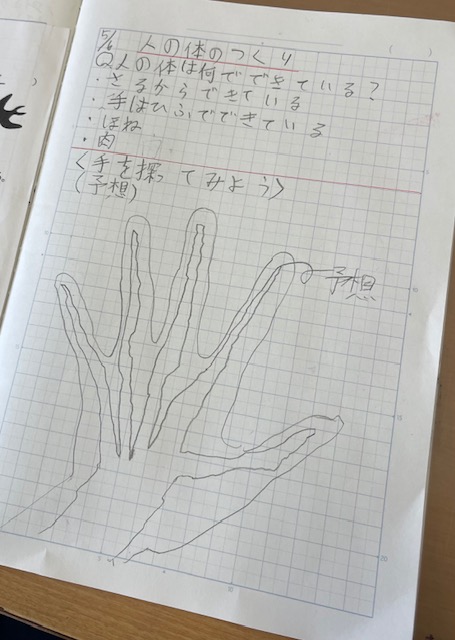 5/6 人の体のつくり
Q人の体は何でできている?
・さるからできている
・手はひふでできている
・ほね
・肉
〈手を探ってみよう〉
(予想)
予想
10
15
20
10